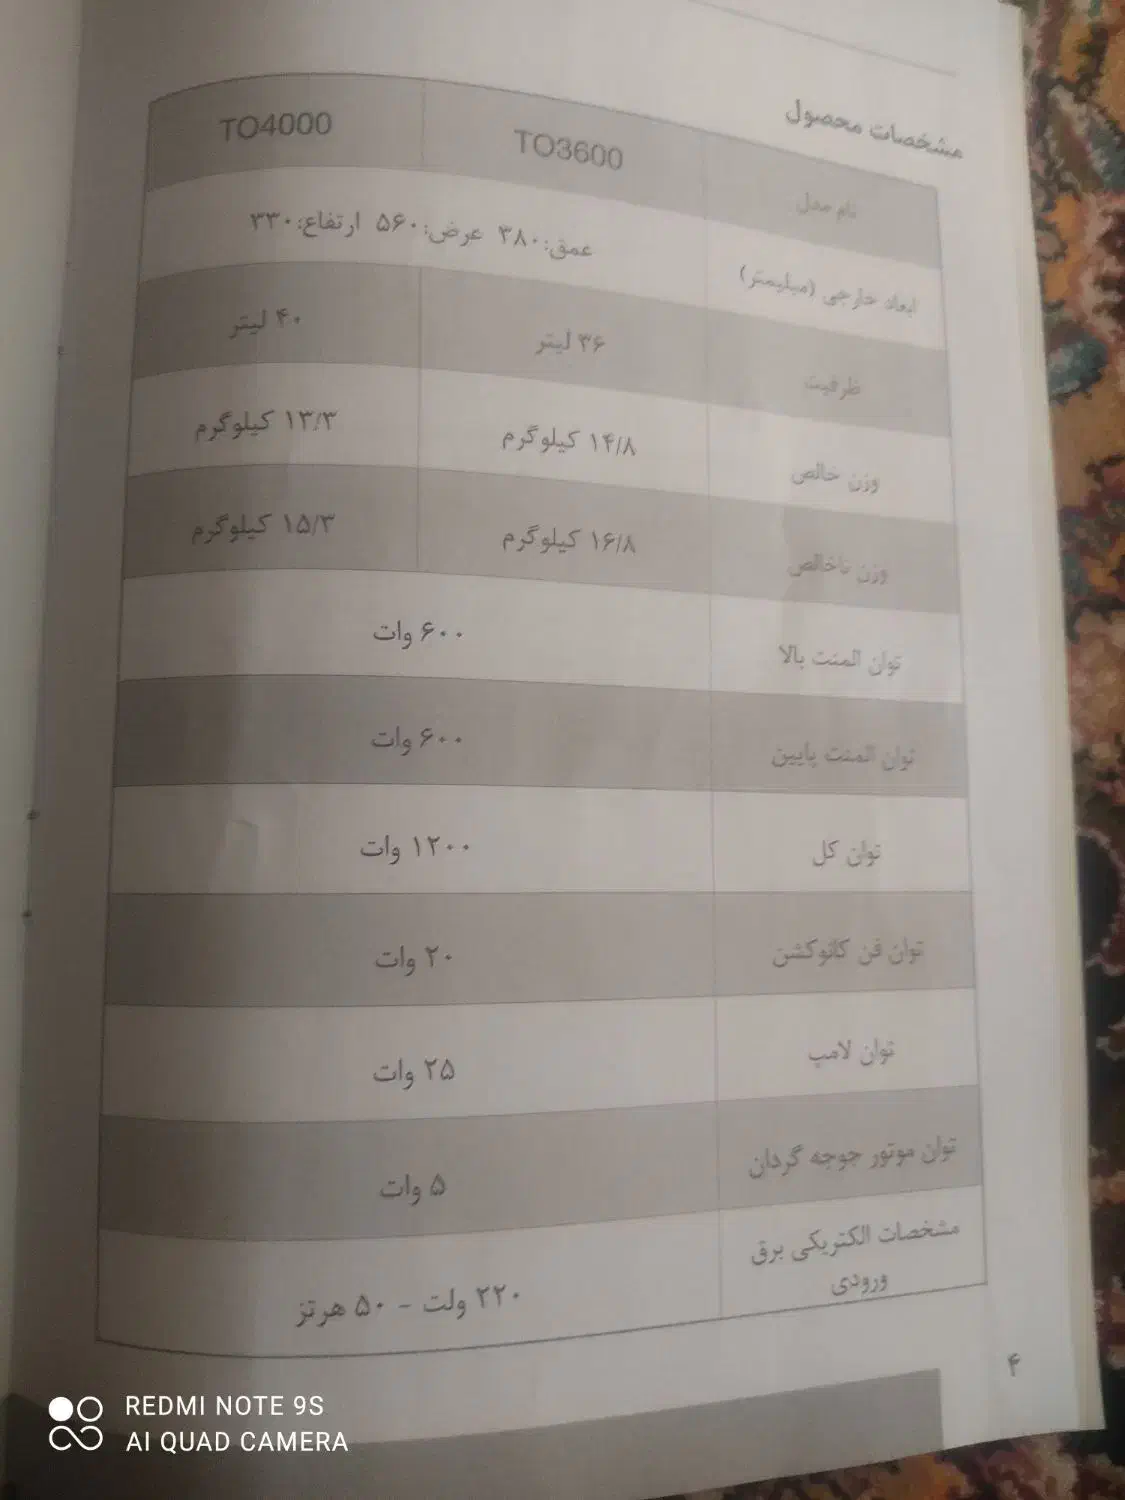 مشخصات محصول
نام مدل TO3600 TO4000
ابعاد خارجی (میلیمتر) عمق:۳۸۰ عرض:۵۶۰ ارتفاع:۳۳۰
ظرفیت ۳۶ لیتر ۴۰ لیتر
وزن خالص ۱۴/۸ کیلوگرم ۱۳/۳ کیلوگرم
وزن ناخالص ۱۶/۸ کیلوگرم ۱۵/۳ کیلوگرم
توان المنت بالا ۶۰۰ وات
توان المنت پایین ۶۰۰ وات
توان کل ۱۲۰۰ وات
توان فن کانوکشن ۲۰ وات
توان لامپ ۲۵ وات
توان موتور جوجه گردان ۵ وات
مشخصات الکتریکی برق
ورودی ۲۲۰ ولت - ۵۰ هرتز
۴
REDMI NOTE 9S
AI QUAD CAMERA